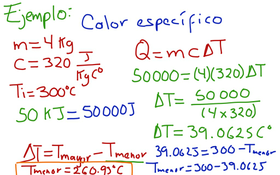 Ejemplo:
Calor específico
m = 4 Kg
C = 320 J/KgC°
Ti = 300°C
50 KJ = 50000J
Q = m c ΔT
50000 = (4)(320) ΔT
ΔT = 50000/(4 x 320)
ΔT = 39.0625 C°
ΔT = Tmayor - Tmenor
39.0625 = 300 - Tmenor
Tmenor = 300 - 39.0625
Tmenor = 260.93°C